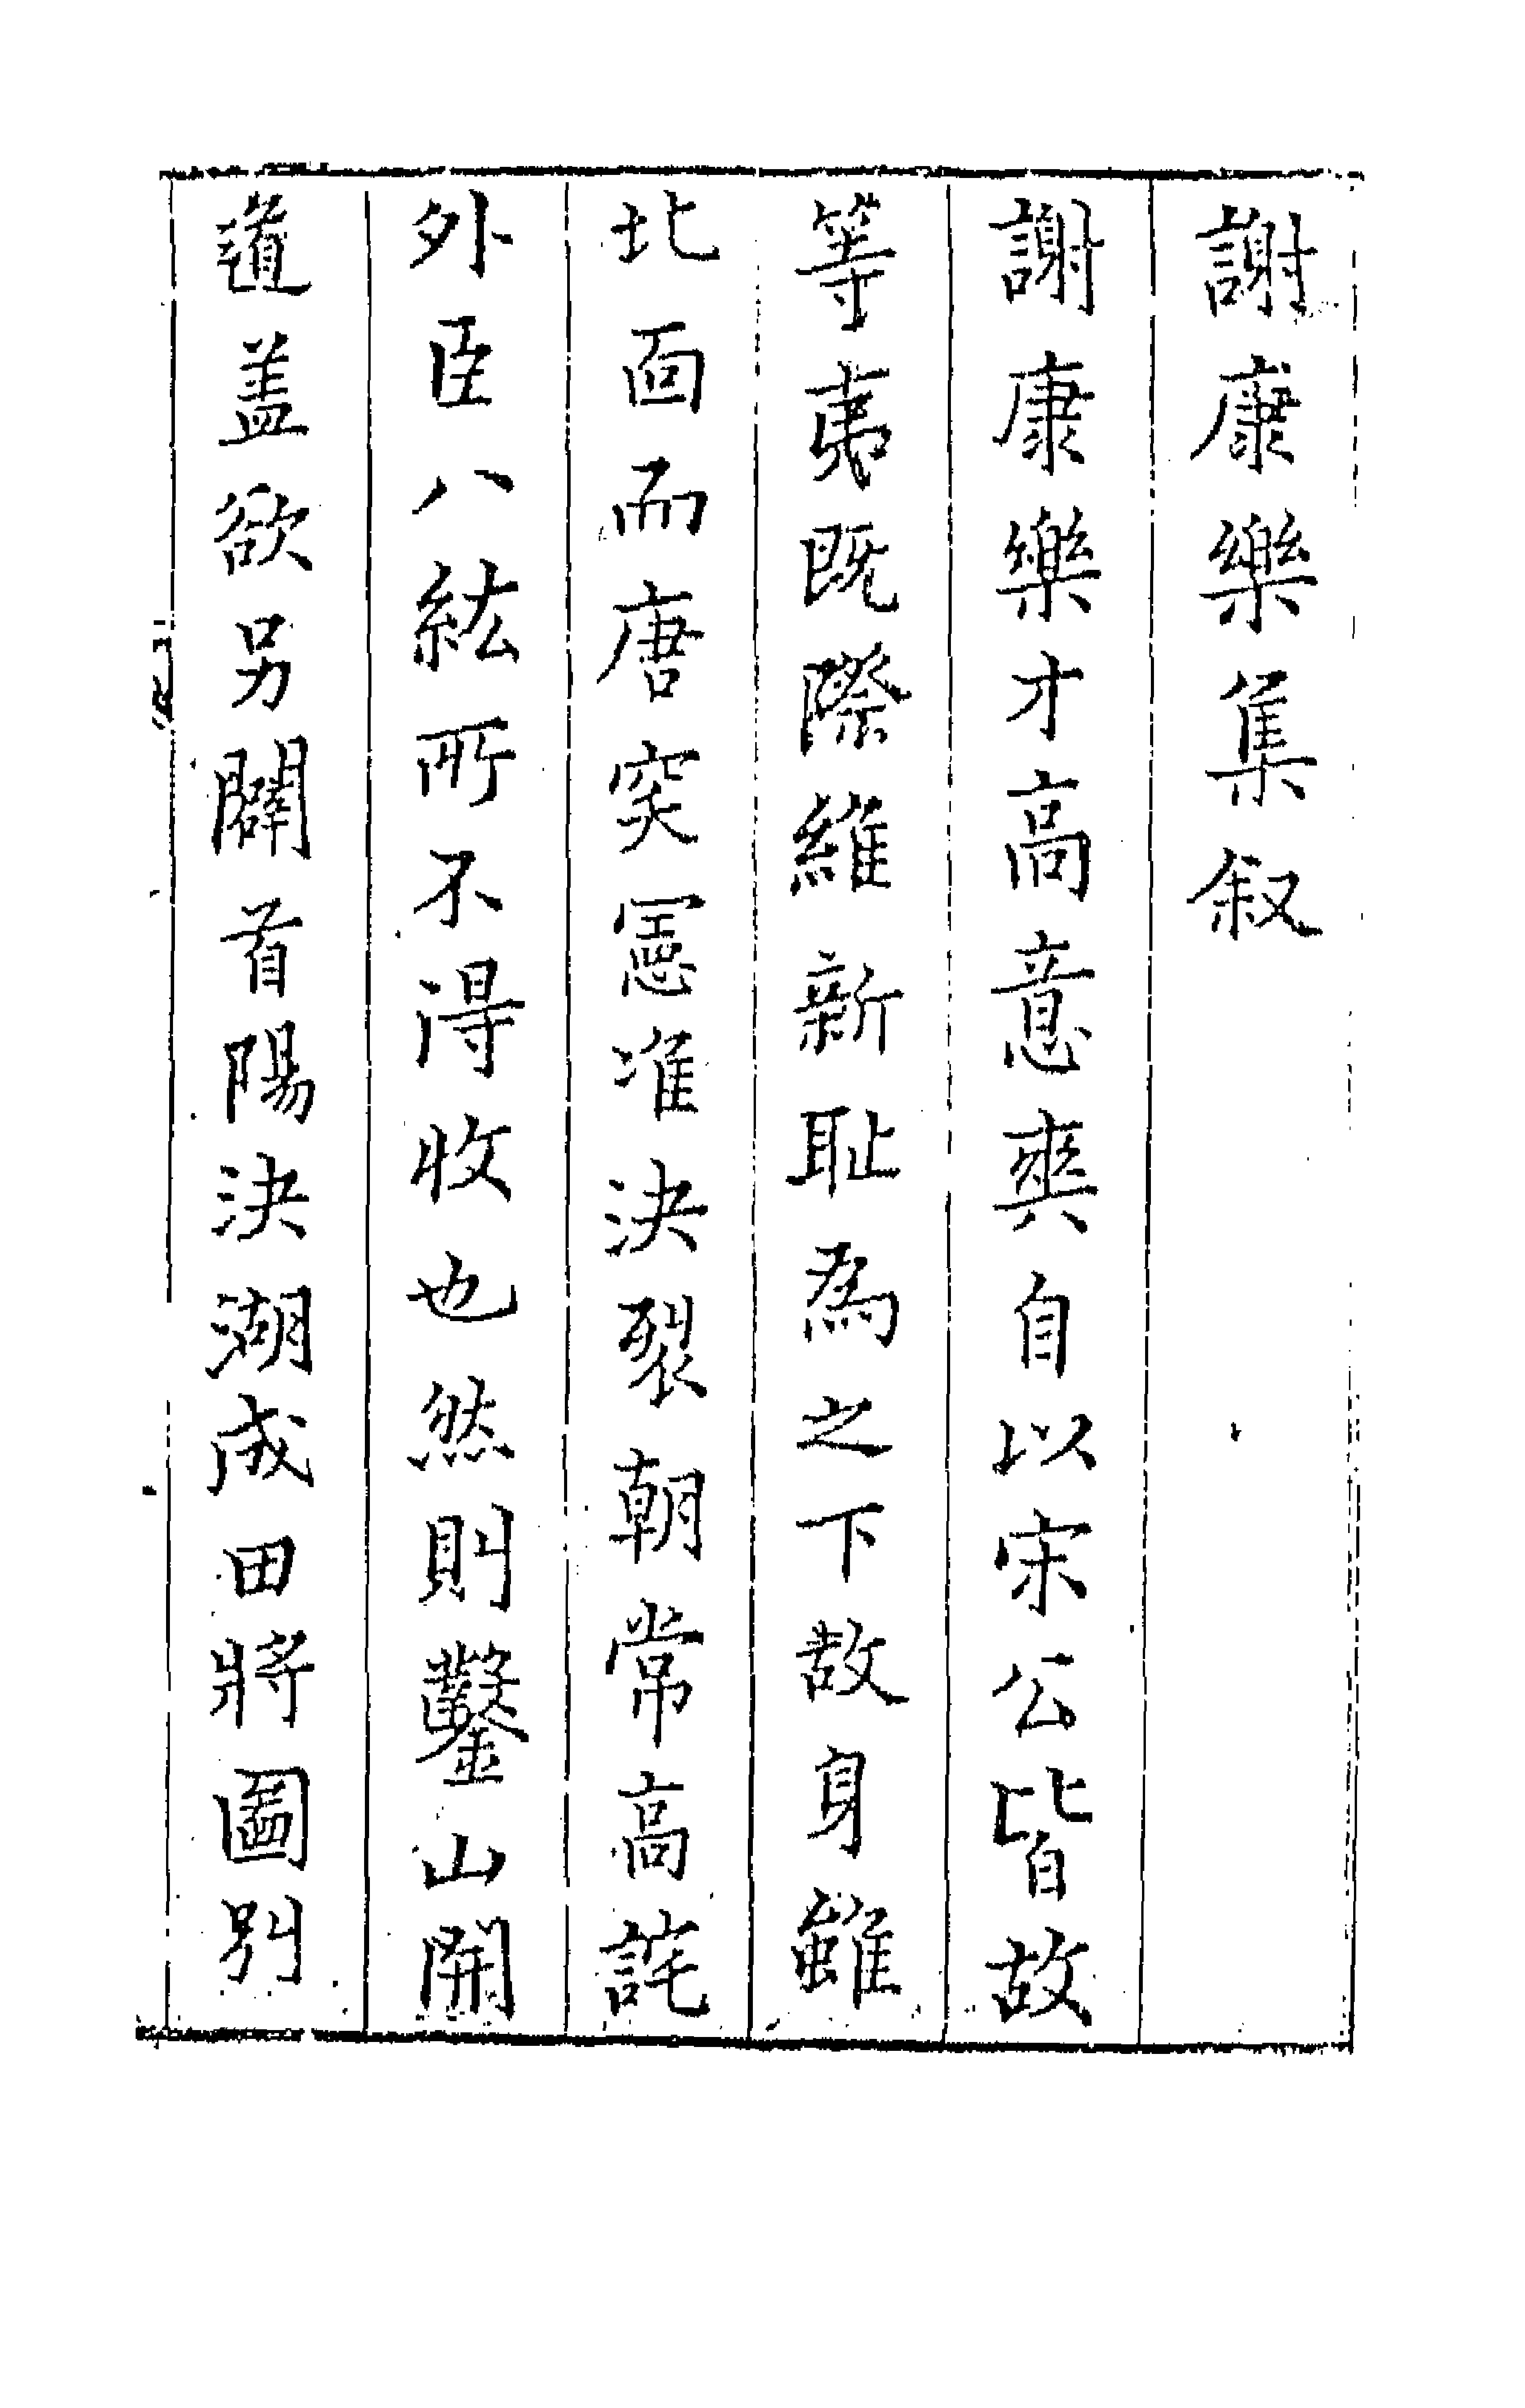 謝康樂集叙
謝康樂才高意爽自以宋公皆故
等夷既際維新耻為之下故身雖
北面而唐突憲准決裂朝常高詫
外臣八紘所不得收也然則鑿山開
道盖欲另闢首陽決湖成田將圖別